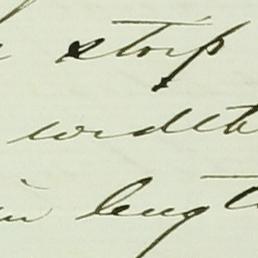 stop
width
in length